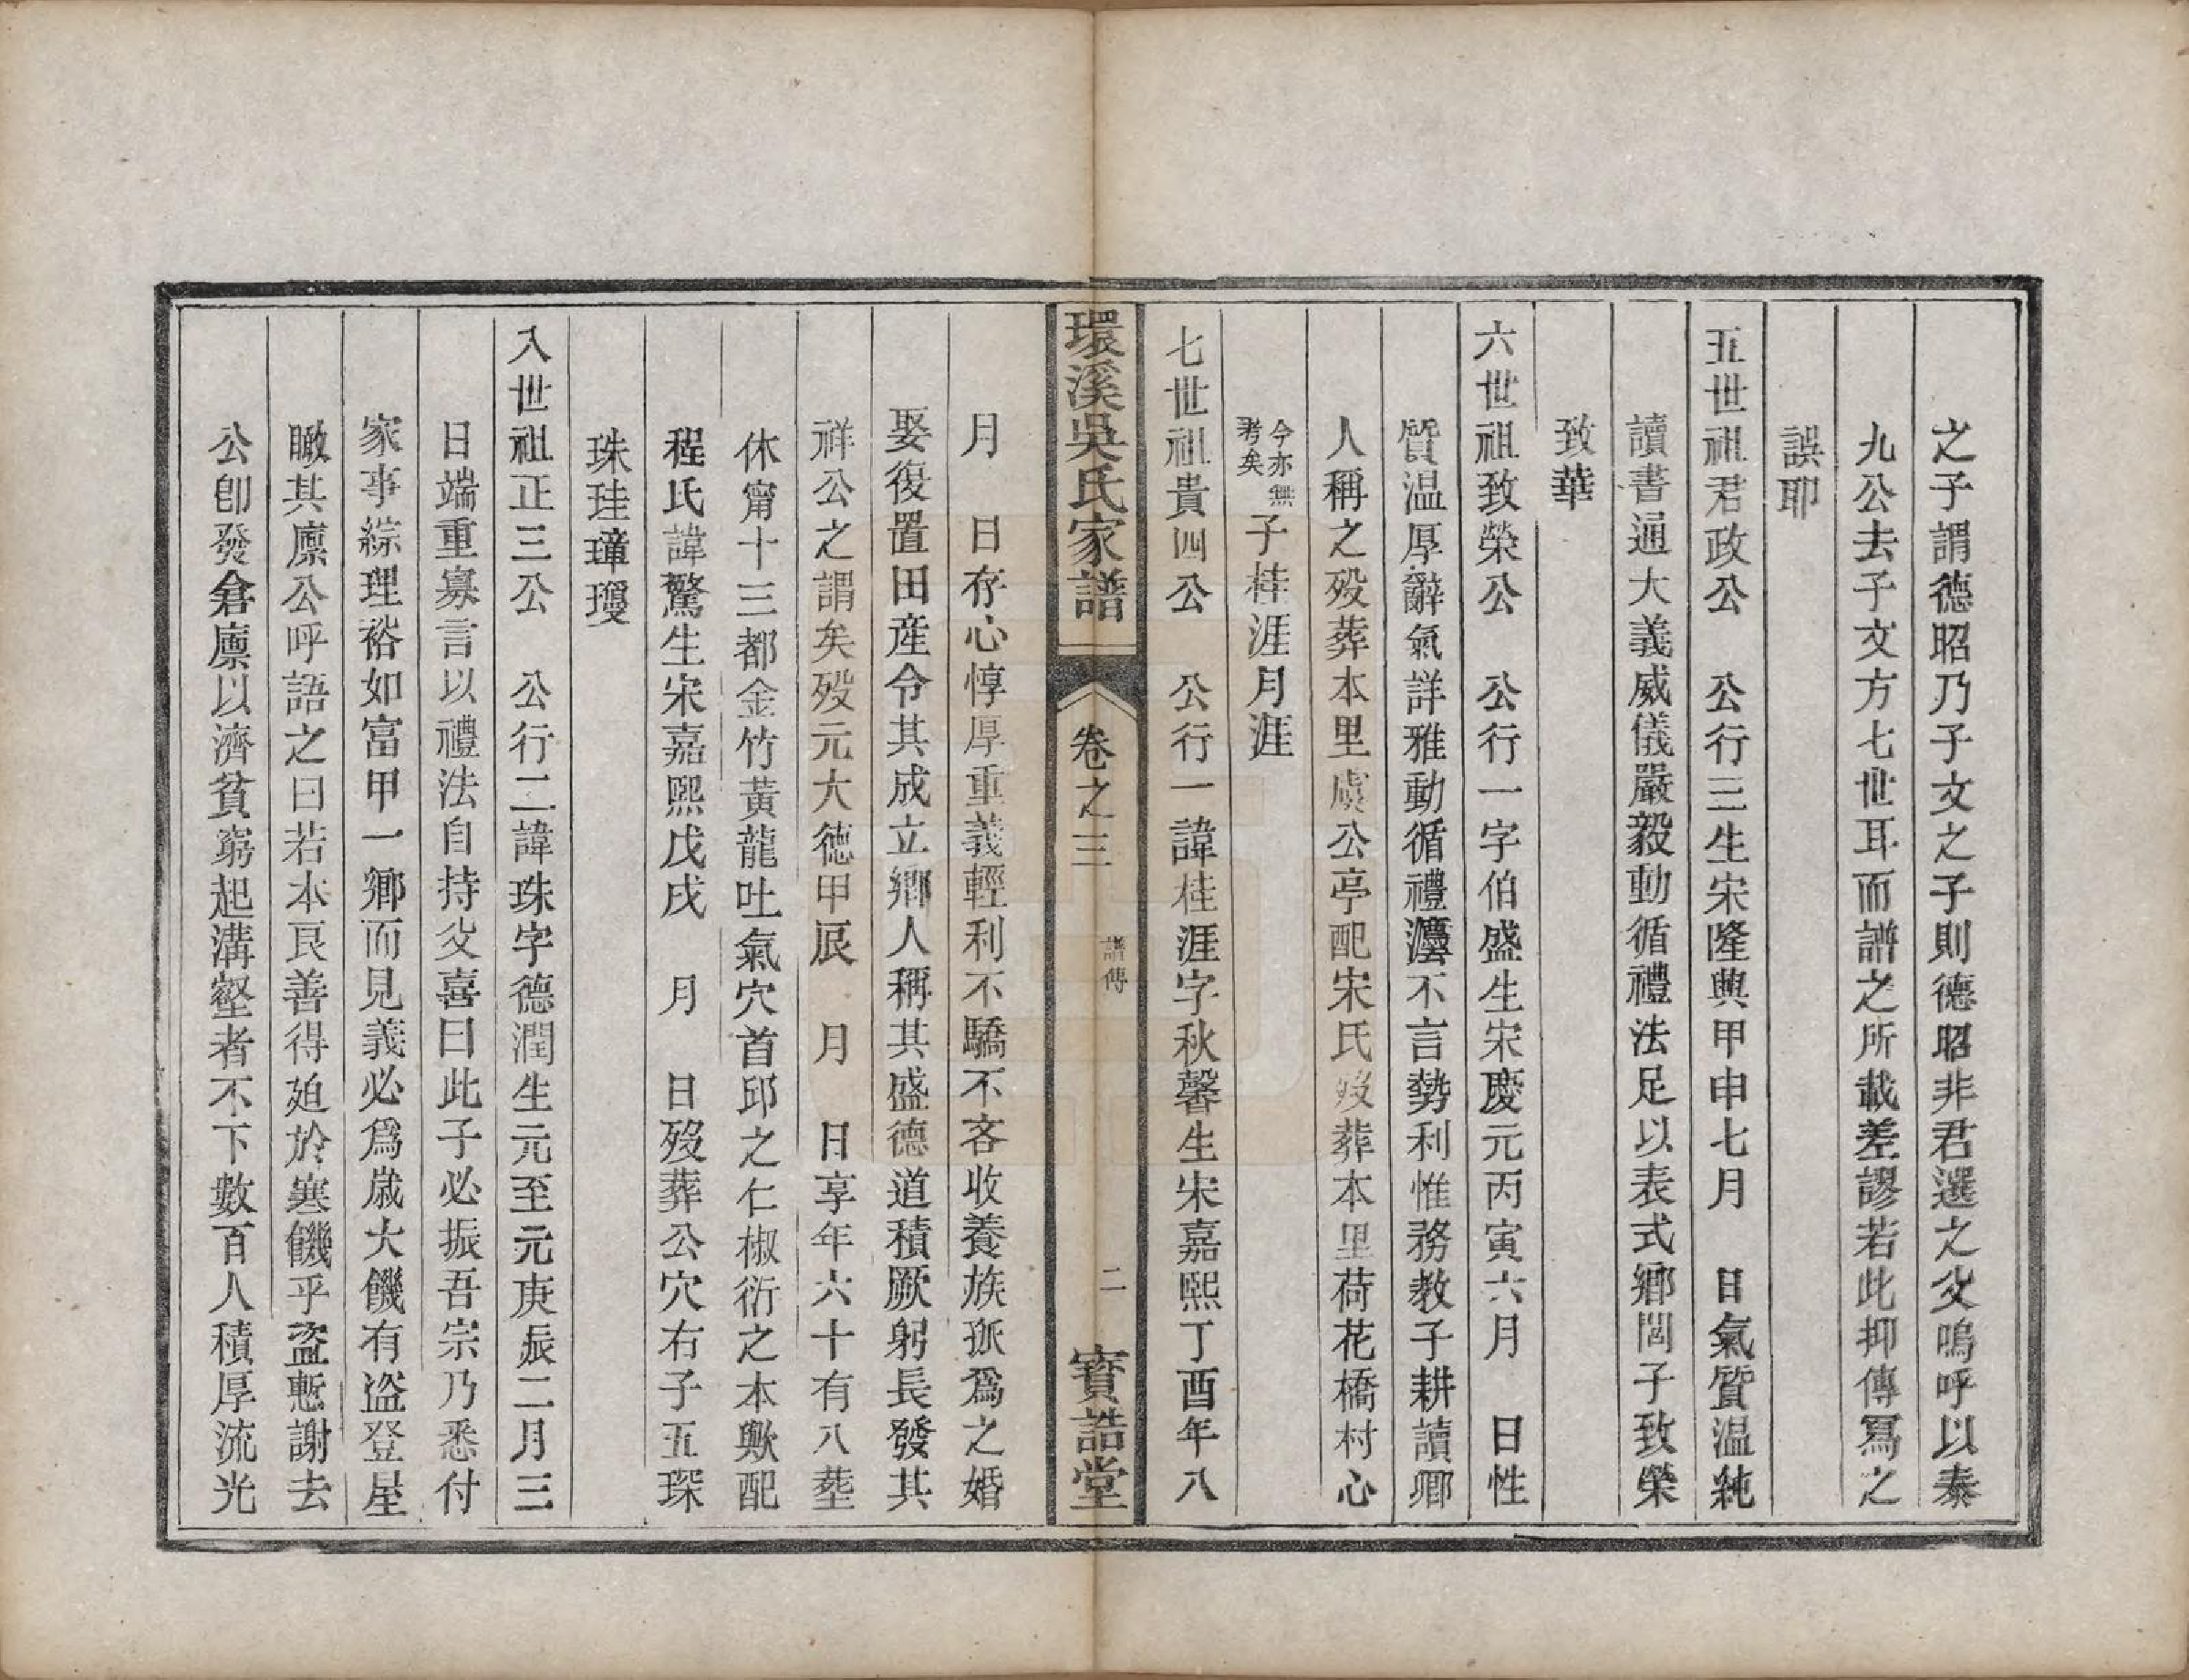 之子謂德昭乃子文之子則德昭非君選之父嗚呼以泰
九公去子文方七世耳而譜之所載差謬若此抑傳寫之
誤耶
五世祖君政公　公行三生宋隆興甲申七月　日氣質温純
讀書通大義威儀嚴毅動循禮法足以表式鄉閭子致榮
致華
六世祖致榮公　公行一字伯盛生宋慶元丙寅六月　日性
質温厚辭氣詳雅動循禮灋不言勢利惟務教子耕讀鄉
人稱之歿葬本里虞公亭配宋氏歿葬本里荷花橋村心
今亦無考矣子桂涯月涯
七世祖貴四公　公行一諱桂涯字秋馨生宋嘉熙丁酉年八
環溪吳氏家譜　卷之三　譜傳　二　寶誥堂
月　日存心惇厚重義輕利不驕不吝收養族孤爲之婚
娶復置田産令其成立鄉人稱其盛德道積厥躬長發其
祥公之謂矣歿元大德甲辰　月　日享年六十有八塟
休甯十三都金竹黃龍吐氣穴首邱之仁椒衍之本歟配
程氏諱驚生宋嘉熙戊戌　月　日歿葬公穴右子五琛
珠珪璋瓊
入世祖正三公　公行二諱珠字德潤生元至元庚辰二月三
日端重寡言以禮法自持父喜曰此子必振吾宗乃悉付
家事綜理裕如富甲一鄉而見義必爲歲大饑有盜登屋
瞰其廪公呼語之曰若本良善得廹於寒饑乎盜慙謝去
公卽發倉廪以濟貧窮起溝壑者不下數百人積厚流光